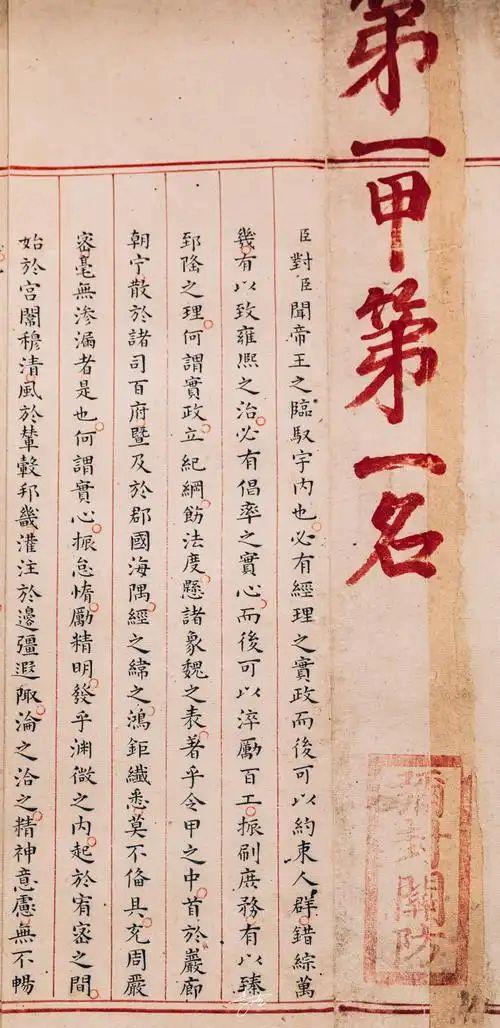 第一甲第一名
彌封關防
臣對臣聞帝王之臨馭宇內也必有經理之實政而後可以約束人群錯綜萬
幾有以致雍熙之治必有倡率之實心而後可以淬勵百工振刷庶務有以臻
郅隆之理何謂實政立紀綱飭法度懸諸象魏之表著乎令甲之中首於巖廊
朝宁散於諸司百府暨及於郡國海隅經之緯之鴻鉅纖悉莫不備具充周嚴
密毫無滲漏者是也何謂實心振怠惰勵精明發乎淵微之內起於宥密之間
始於宮闈穆清風於輦轂邦畿灌注於邊疆遐陬淪之洽之精神意慮無不暢